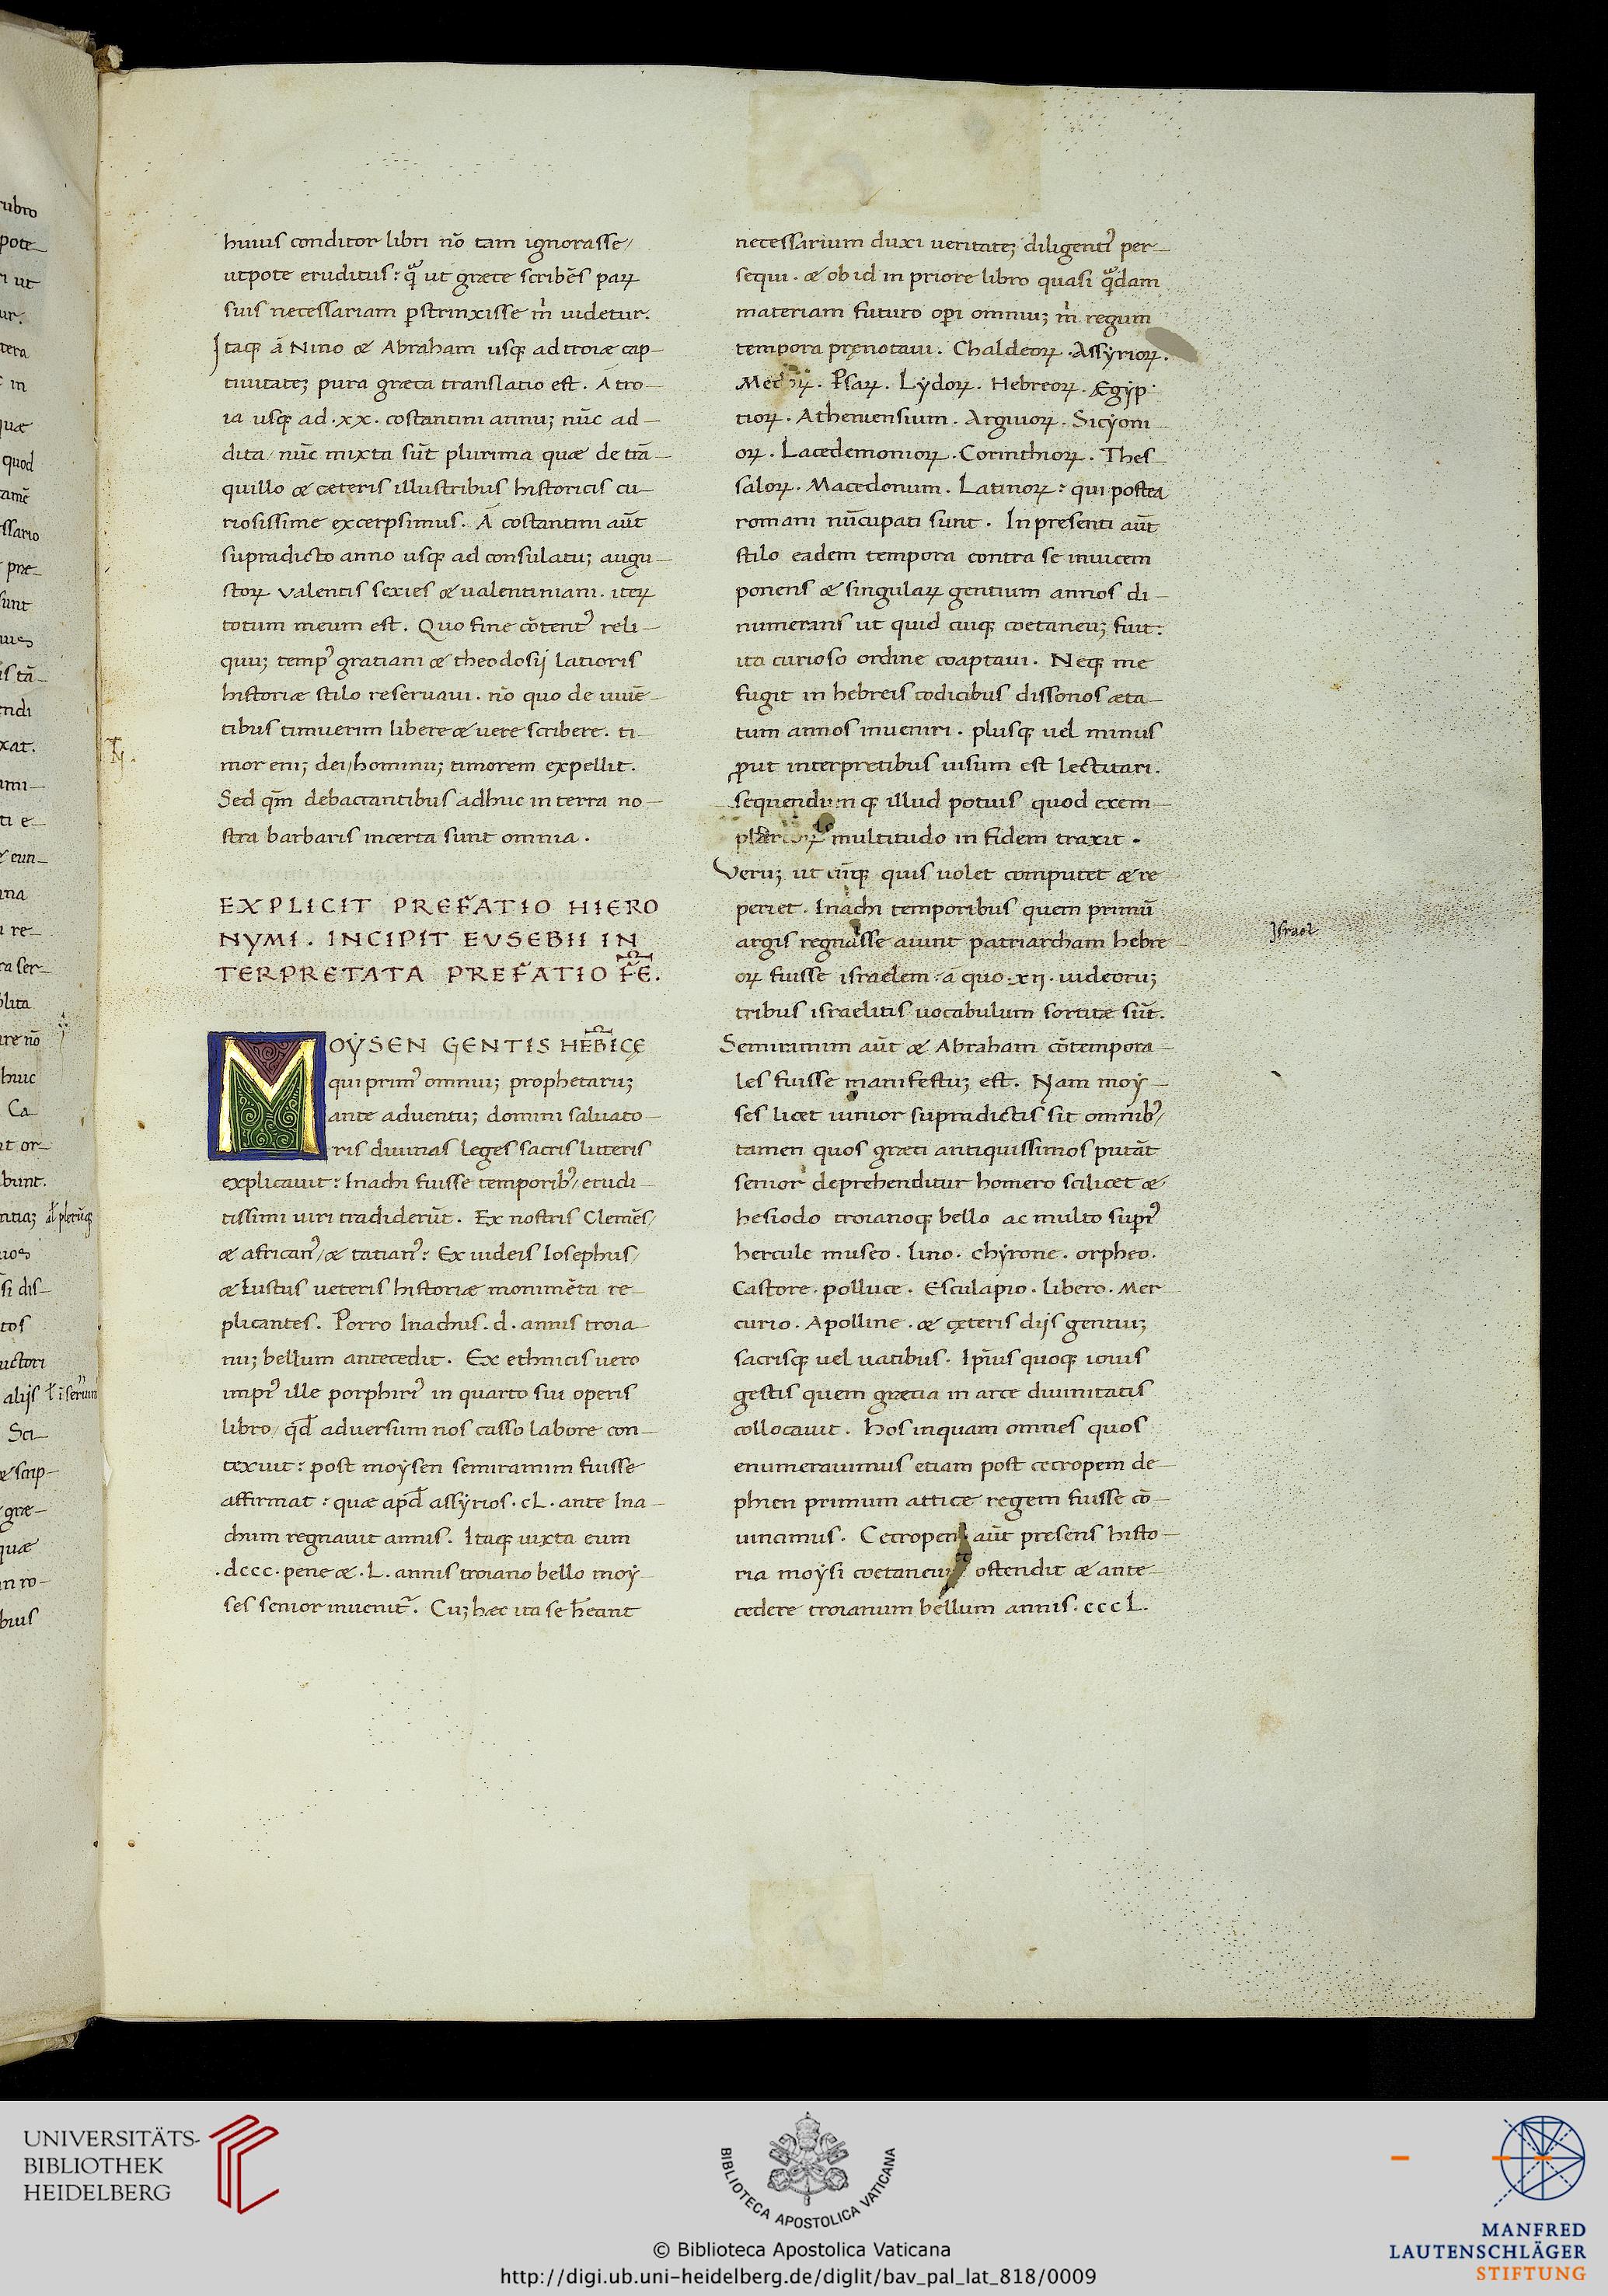 huius conditor libri nō tam ignorasse/
utpote eruditus: qͣ ut græce scribēs paꝝ
suis necessariam ꝑstrinxisse m̍ uidetur.
Itaqꝫ á Nino & Abraham usqꝫ ad troiæ cap-
tiuitateꝫ pura græca translatio est. A tro-
ia usqꝫ ad .xx. costantini annuꝫ nūc ad-
dita/ nūc mixta sūt plurima quæ de trā-
quillo & ceteris illustribus historicis cu-
riosissime excerpsimus. A costantini aūt
supradicto anno usqꝫ ad consulatuꝫ augu-
stoꝝ valentis sexies & ualentiniani. iteꝝ
totum meum est. Quo fine cōtentꝰ reli-
quuꝫ tempꝰ gratiani & theodosij latioris
historiæ stilo reseruaui. nō quo de uiuē-
tibus timuerim libere & uere scribere. ti-
mor eniꝫ dei/ hominuꝫ timorem expellit.
Sed qm̄ debaccantibus adhuc in terra no-
stra barbaris incerta sunt omnia.
EXPLICIT PREFATIO HIERO
NYMI. INCIPIT EVSEBII IN
TERPRETATA PREFATIO FE.
MOYSEN GENTIS HEBICĘ
qui primꝰ omniuꝫ prophetaruꝫ
ante aduentuꝫ domini saluato-
ris diuinas leges sacris litteris
explicauit: Inachi fuisse temporibꝰ/ erudi-
tissimi uiri tradiderūt. Ex nostris Clemēs/
& africanꝰ/ & tatianꝰ: Ex iudeis Iosephus/
& Iustus ueteris historiæ monimēta re-
plicantes. Porro Inachus .d. annis troia-
nuꝫ bellum antecedit. Ex ethnicis uero
impiꝰ ille porphiriꝰ in quarto sui operis
libro/ qđ aduersum nos casso labore con-
texuit: post moysen semiramim fuisse
affirmat: quæ apđ assyrios .cL. ante Ina-
chum regnauit annis. Itaqꝫ iuxta eum
.dccc. pene & .L. annis troiano bello moy-
ses senior inuenitᷣ. Cuꝫ hæc ita se hēant
necessarium duxi ueritateꝫ diligentiꝰ per-
sequi. & ob id in priore libro quasi qͣdam
materiam futuro oꝑi omniuꝫ m̍ regum
tempora pręnotaui. Chaldeoꝝ. Assyrioꝝ.
Medoꝝ. Ꝑsaꝝ. Lydoꝝ. Hebreoꝝ. Ægyp-
tioꝝ. Atheniensium. Argiuoꝝ. Sicyoni-
oꝝ. Lacedemonioꝝ. Corinthioꝝ. Thes-
saloꝝ. Macedonum. Latinoꝝ: qui postea
romani nūcupati sunt. In presenti aūt
stilo eadem tempora contra se inuicem
ponens & singulaꝝ gentium annos di-
numerans ut quid cuiqꝫ coetaneuꝫ fuit:
ita curioso ordine coaptaui. Neqꝫ me
fugit in hebreis codicibus dissonos æta-
tum annos inueniri. plusqꝫ uel minus
ꝓut interpretibus uisum est lectitari.
sequendumqꝫ illud potius quod exem-
plarioꝝ multitudo in fidem traxit.
Veruꝫ ut cūqꝫ quis uolet computet & re-
periet. Inachi temporibus quem primū
argis regnasse aiunt patriarcham hebre-
oꝝ fuisse israelem: á quo .xij. iudeoruꝫ
tribus israelitis uocabulum sortitæ sūt.
Semiramim aūt & Abraham cōtempora-
les fuisse manifestuꝫ est. Nam moy-
ses licet iunior supradictis sit omnibꝰ/
tamen quos græci antiquissimos putāt
senior deprehenditur homero scilicet &
hesiodo troianoqꝫ bello ac multo superiꝰ
hercule museo. lino. chyrone. orpheo.
Castore. polluce. Esculapio. libero. Mer-
curio. Apolline. & cęteris dijs gentiuꝫ
sacrisqꝫ uel uatibus. Ipīus quoqꝫ iouis
gestis quem græcia in arce diuinitatis
collocauit. Hos inquam omnes quos
enumerauimus etiam post cecropem de-
phien primum atticę regem fuisse cō-
uincimus. Cecropem aūt presens histo-
ria moysi coetaneum ostendit & ante-
cedere troianum bellum annis .cccL.
Israel
UNIVERSITÄTS-
BIBLIOTHEK
HEIDELBERG
BIBLIOTECA APOSTOLICA VATICANA
© Biblioteca Apostolica Vaticana
http://digi.ub.uni-heidelberg.de/diglit/bav_pal_lat_818/0009
MANFRED
LAUTENSCHLÄGER
STIFTUNG